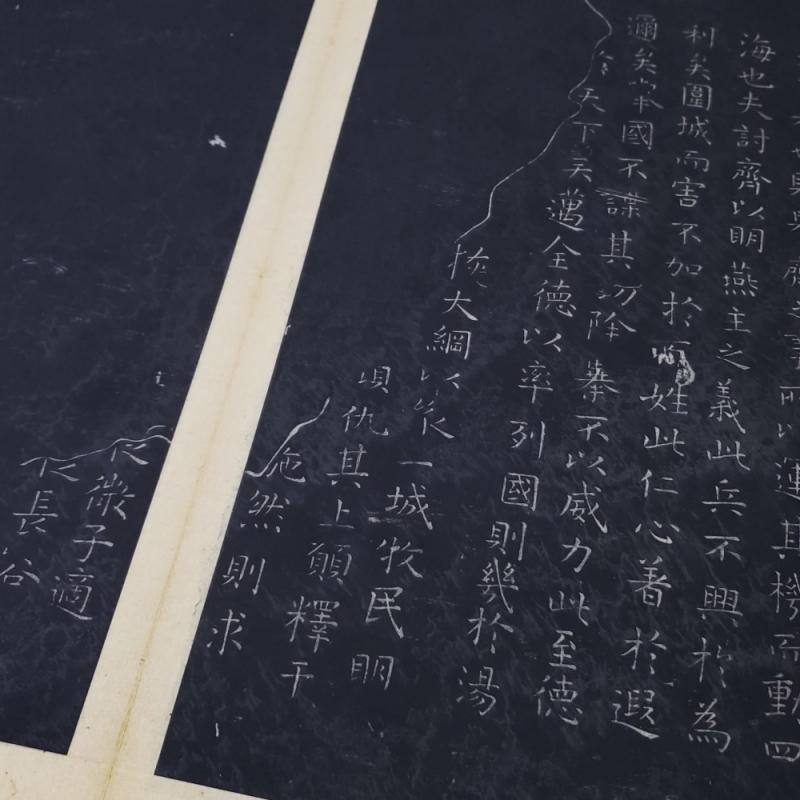 齊之事所以運其機而動四
海也夫討齊以明燕主之義此兵不興於為
利矣圍城而害不加於百姓此仁心著於遐
邇矣舉國不謀其功除暴不以威力此至德
令天下矣邁全德以率列國則幾於湯
恢大綱以一城牧民明
仇其上願釋干
施然則求
微子適
長容